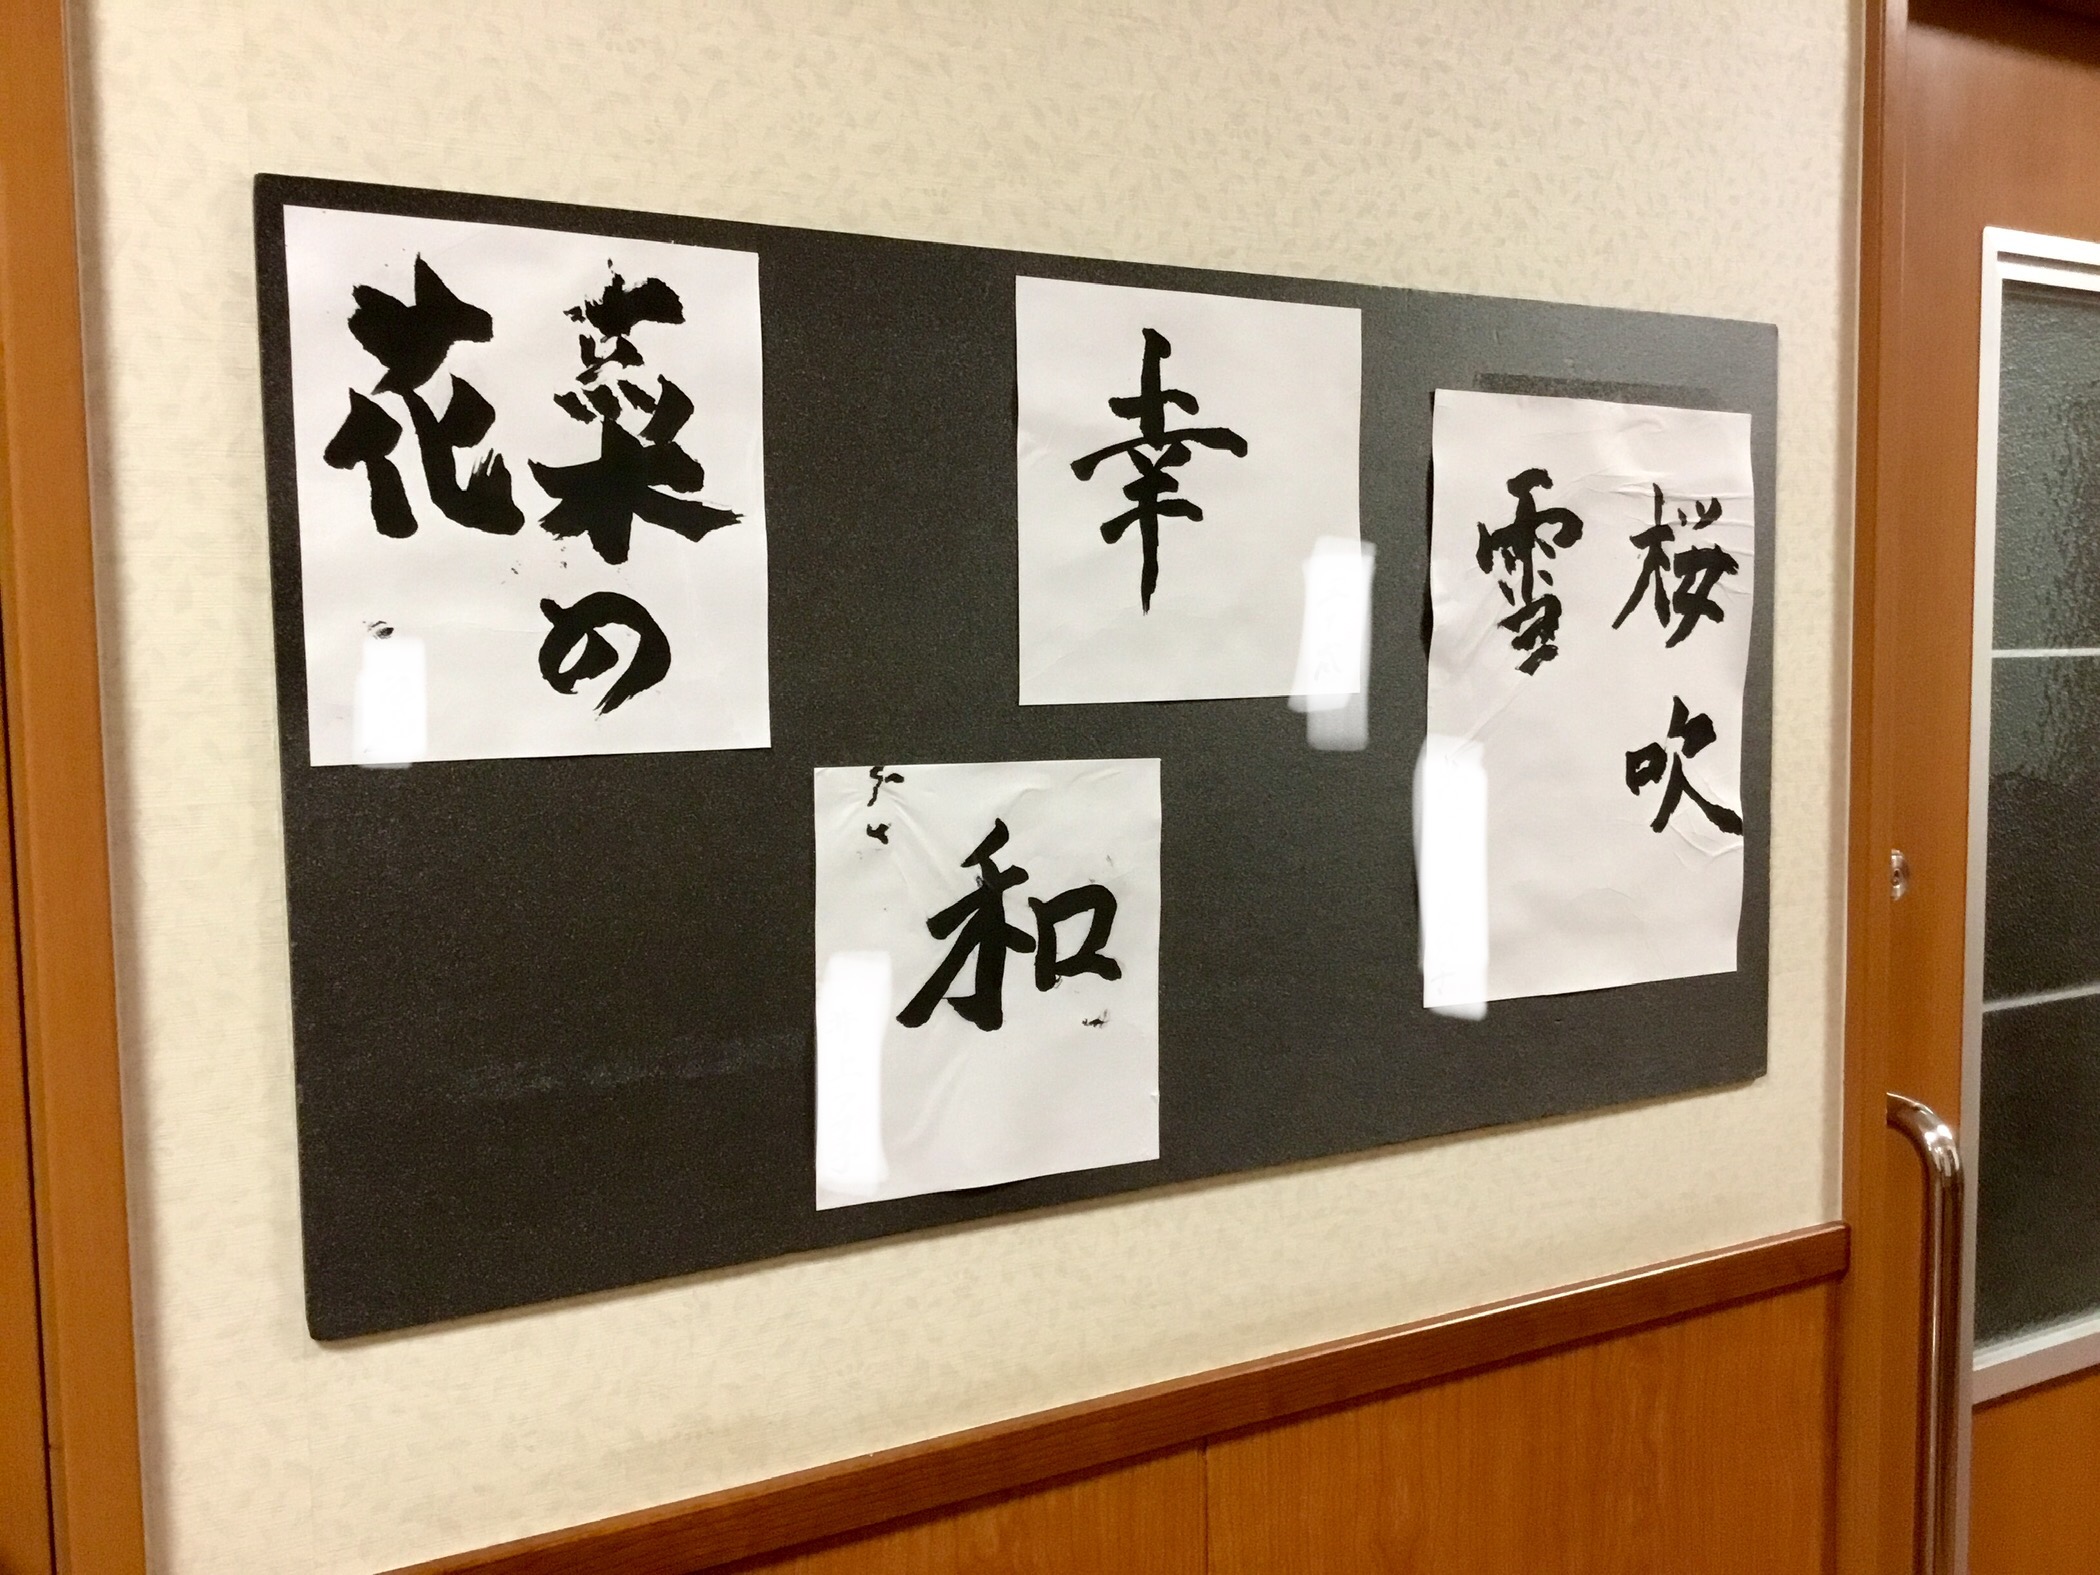 菜の
花
幸
和
桜吹
雪